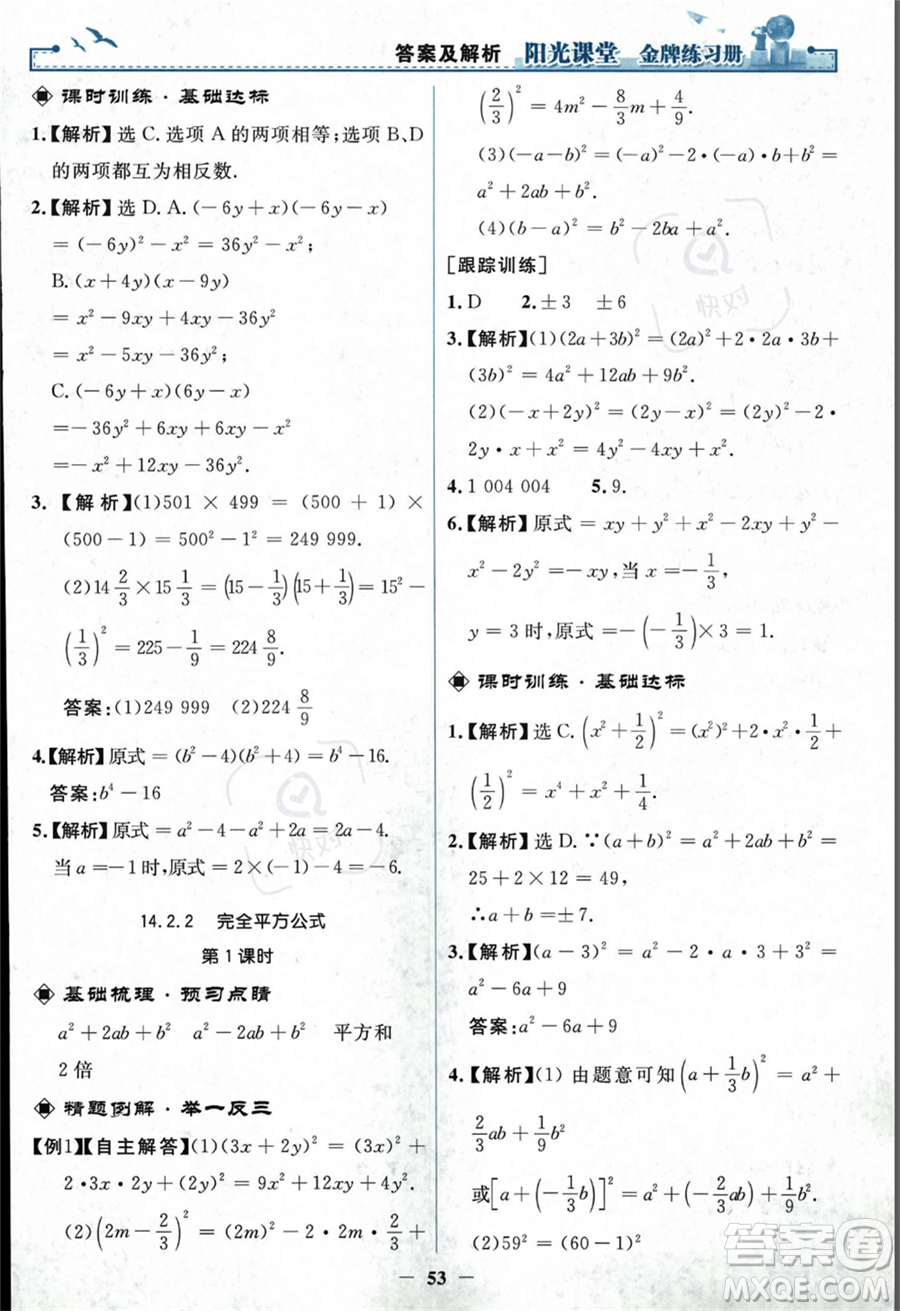 答案及解析 阳光课堂 金牌练习册
课时训练·基础达标
1.【解析】选 C. 选项 A 的两项相等;选项 B、D
的两项都互为相反数.
2.【解析】选 D. A. (-6y+x)(-6y-x)
=(-6y)²-x²=36y²-x²;
B. (x+4y)(x-9y)
=x²-9xy+4xy-36y²
=x²-5xy-36y²;
C. (-6y+x)(6y-x)
=-36y²+6xy+6xy-x²
=-x²+12xy-36y².
3.【解析】(1)501×499=(500+1)×
(500-1)=500²-1²=249 999.
(2)14 2/3×15 1/3=(15-1/3)(15+1/3)=15²-
(1/3)²=225-1/9=224 8/9.
答案:(1)249 999 (2)224 8/9
4.【解析】原式=(b²-4)(b²+4)=b⁴-16.
答案:b⁴-16
5.【解析】原式=a²-4-a²+2a=2a-4.
当 a=-1 时,原式=2×(-1)-4=-6.
14.2.2 完全平方公式
第 1 课时
基础梳理·预习点睛
a²+2ab+b² a²-2ab+b² 平方和
2 倍
精题例解·举一反三
【例1】【自主解答】(1)(3x+2y)²=(3x)²+
2·3x·2y+(2y)²=9x²+12xy+4y².
(2)(2m-2/3)²=(2m)²-2·2m·2/3+
(2/3)²=4m²-8/3m+4/9.
(3)(-a-b)²=(-a)²-2·(-a)·b+b²=
a²+2ab+b².
(4)(b-a)²=b²-2ba+a².
[跟踪训练]
1. D 2. ±3 ±6
3.【解析】(1)(2a+3b)²=(2a)²+2·2a·3b+
(3b)²=4a²+12ab+9b².
(2)(-x+2y)²=(2y-x)²=(2y)²-2·
2y·x+x²=4y²-4xy+x².
4. 1 004 004 5. 9.
6.【解析】原式=xy+y²+x²-2xy+y²-
x²-2y²=-xy,当 x=-1/3,
y=3 时,原式=-(-1/3)×3=1.
课时训练·基础达标
1.【解析】选 C. (x²+1/2)²=(x²)²+2·x²·1/2+
(1/2)²=x⁴+x²+1/4.
2.【解析】选 D. ∵(a+b)²=a²+2ab+b²=
25+2×12=49,
∴a+b=±7.
3.【解析】(a-3)²=a²-2·a·3+3²=
a²-6a+9
答案:a²-6a+9
4.【解析】(1) 由题意可知(a+1/3b)²=a²+
2/3ab+1/9b²
或[a+(-1/3b)]²=a²+(-2/3ab)+1/9b²
(2)59²=(60-1)²
53
快对
快对
答案圈
MXQE.COM